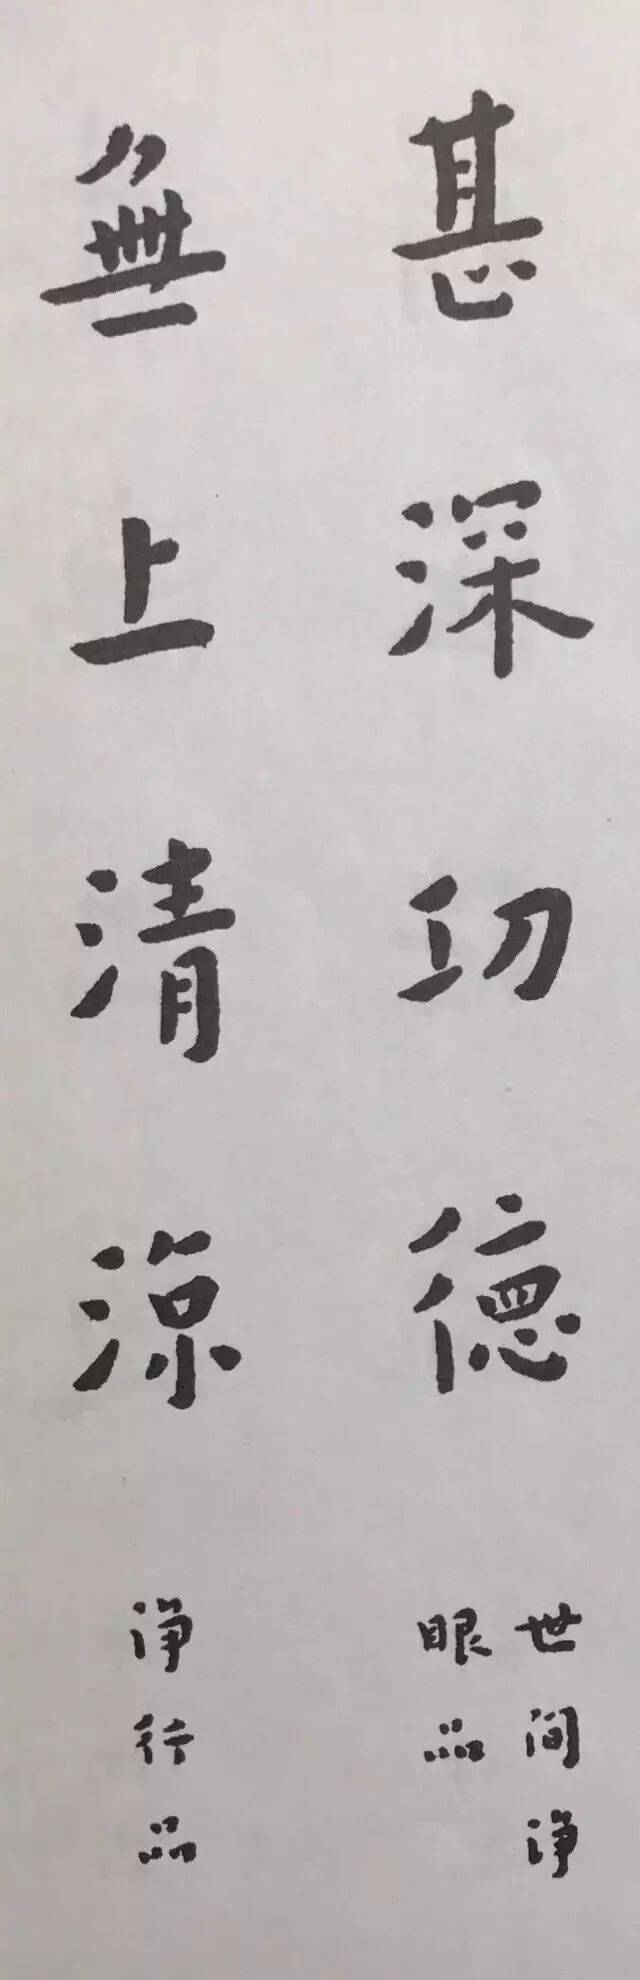 甚深功德
世间净
眼品
無上清涼
净行品